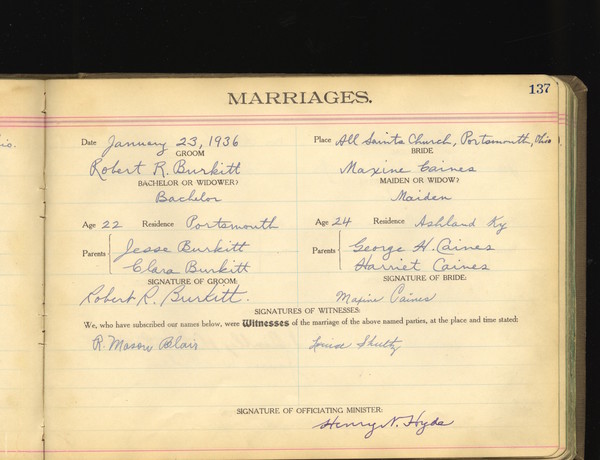 137
MARRIAGES.
io.
Date January 23, 1936 Place All Saints Church, Portsmouth, Ohio
GROOM BRIDE
Robert R. Burkitt Maxine Caines
BACHELOR OR WIDOWER? MAIDEN OR WIDOW?
Bachelor Maiden
Age 22 Residence Portsmouth Age 24 Residence Ashland Ky
Parents Jesse Burkitt Parents George H. Caines
Clara Burkitt Harriet Caines
SIGNATURE OF GROOM: SIGNATURE OF BRIDE:
Robert R. Burkitt. Maxine Caines
SIGNATURES OF WITNESSES:
We, who have subscribed our names below, were Witnesses of the marriage of the above named parties, at the place and time stated:
R. Mason Blair Shultz
SIGNATURE OF OFFICIATING MINISTER:
Henry N. Hyde